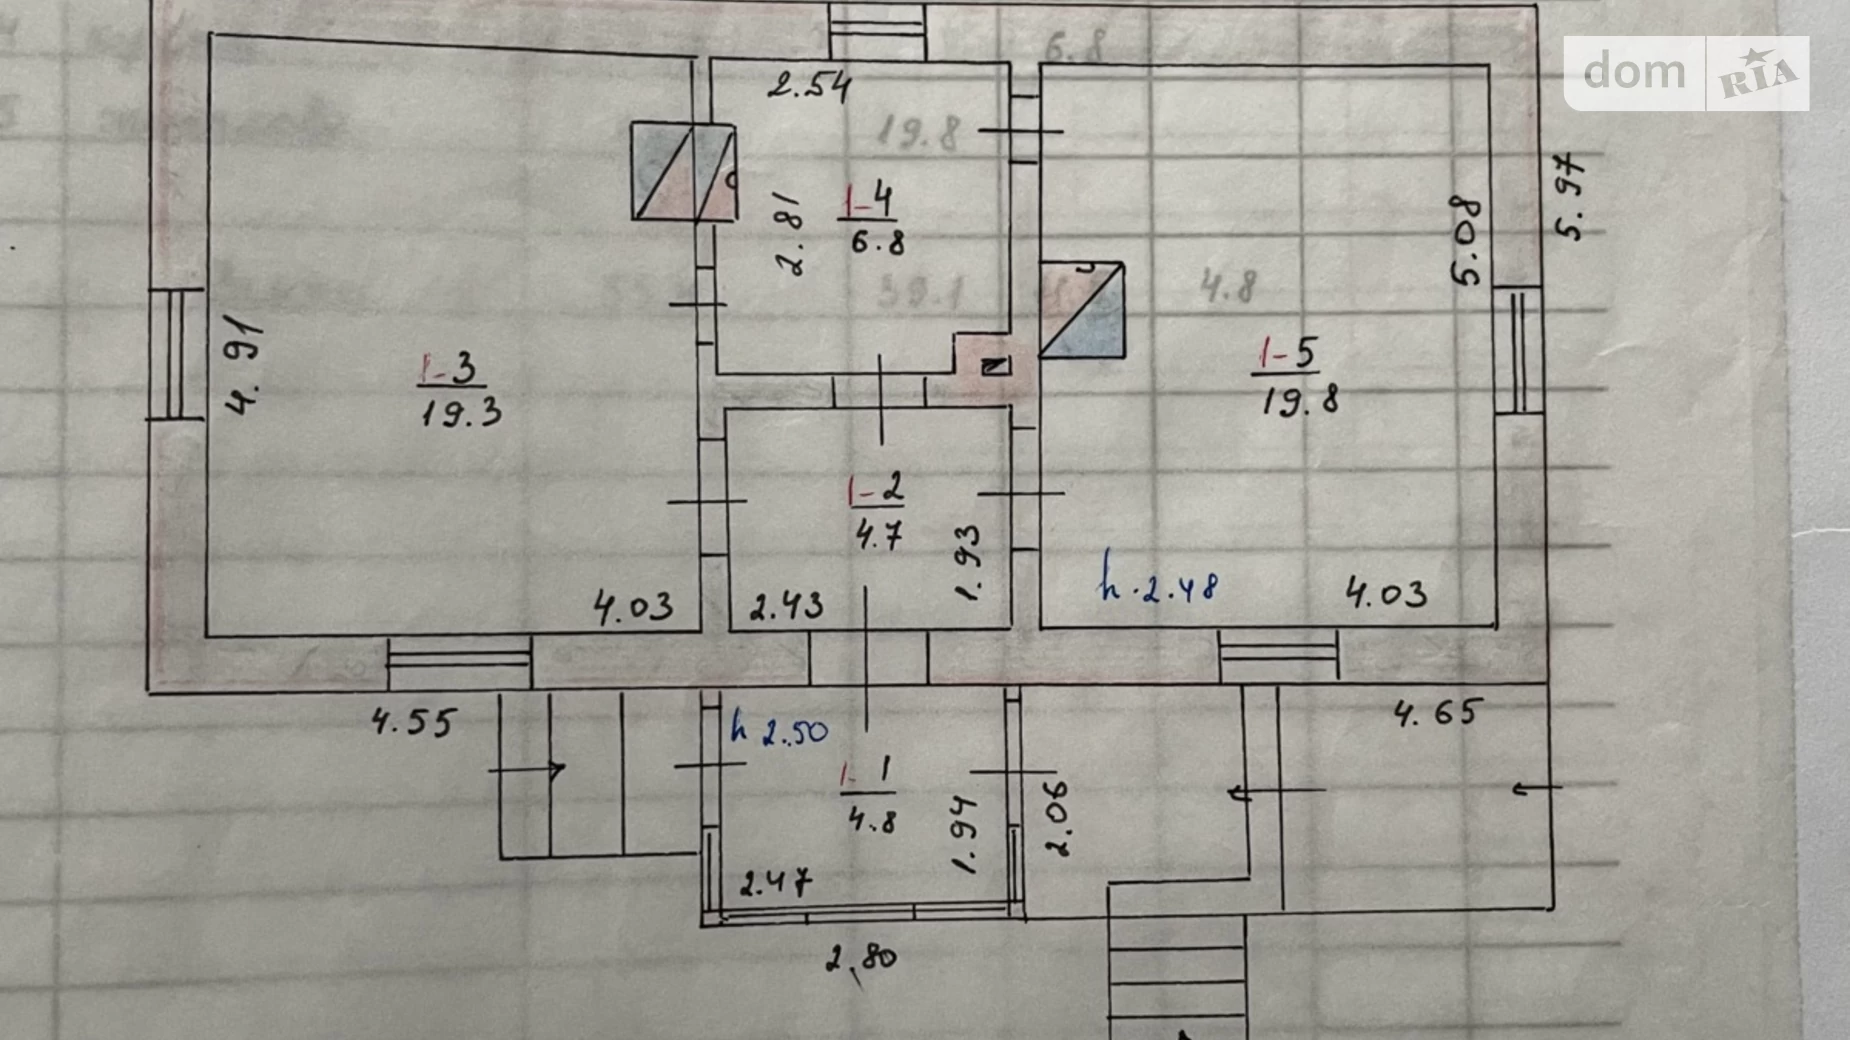 dom RIA
6.8
2.54
19.8
5.97
2.81
1-4
6.8
5.08
39.1
4.8
4.91
1-3
19.3
1-5
19.8
1-2
4.7
1.93
h.2.48
4.03
2.43
4.03
4.55
h 2.50
4.65
1-1
4.8
1.94
2.06
2.47
2,80